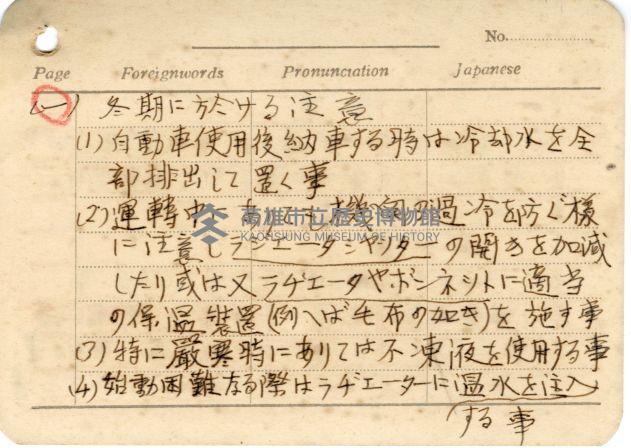 No.
Page Foreignwords Pronunciation Japanese
(一) 冬期に於ける注意
(1) 自動車使用後納車する時は冷却水を全
部排出して置く事
(2) 運轉中 機関の過冷を防ぐ様
に注意しラヂエーターシヤッターの開きを加減
したり或は又ラヂエータやボンネットに適当
の保温装置(例へば毛布の如き)を施す事
(3) 特に厳寒時にありては不凍液を使用する事
(4) 始動困難なる際はラヂエーターに温水を注入
する事
高雄市立歷史博物館
KAOHSIUNG MUSEUM OF HISTORY